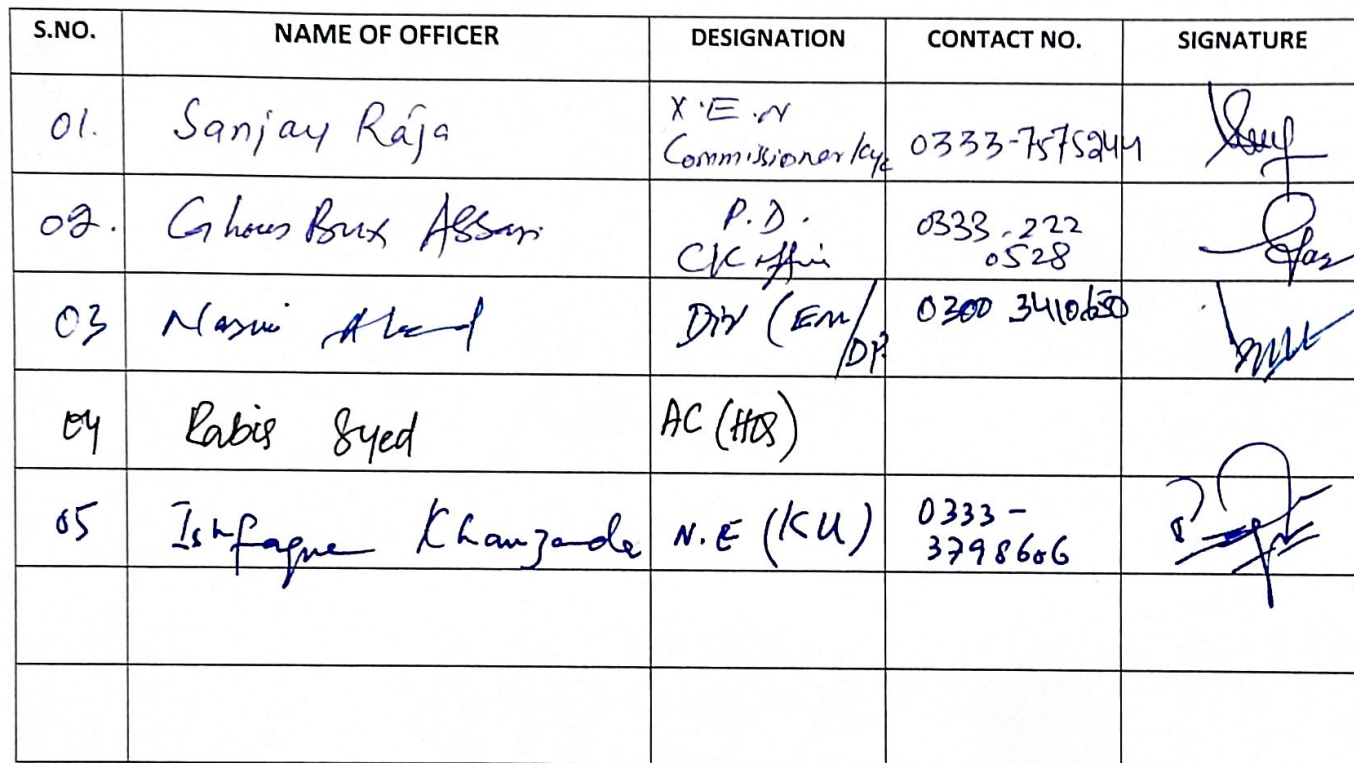 S.NO. NAME OF OFFICER DESIGNATION CONTACT NO. SIGNATURE
01. Sanjay Raja X.E.N Commissioner/Kyc 0333-7575244
02. Ghous Bux P.D. 0333-222
CK office 0528
03 Ahmed Dir (EM/DP) 0300
04 Rabia Syed AC (HQ)
05 Ishfaque Khanzada N.E (KU) 0333-
3798606